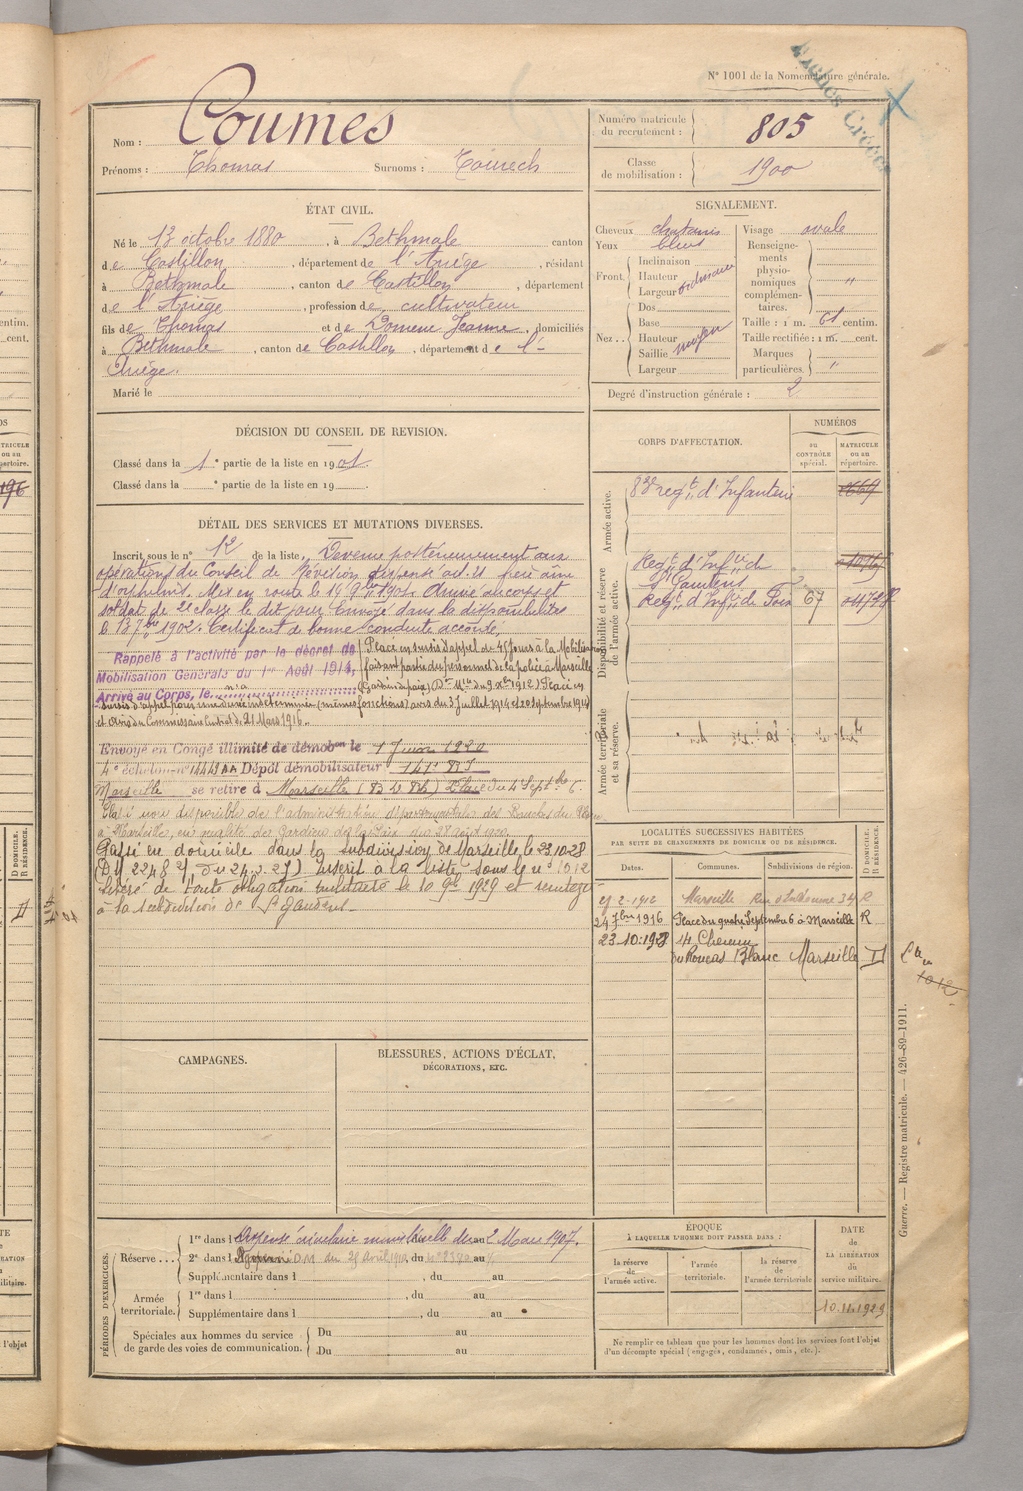 N° 1001 de la Nomenclature générale.
Nom : Coumes
Prénoms : Thomas Surnoms : Toinech
Numéro matricule du recrutement : 805
Classe de mobilisation : 1900
ÉTAT CIVIL.
Né le 13 octobre 1880, à Bethmale canton
de Castillon, département de l'Ariège, résidant
à Bethmale, canton de Castillon, département
de l'Ariège, profession de cultivateur
fils de Thomas et de Domene Jeanne, domiciliés
à Bethmale, canton de Castillon, département de l'-
Ariège.
Marié le
SIGNALEMENT.
Cheveux chatains Visage ovale
Yeux bleus Renseignements physionomiques complémentaires. "
Front Inclinaison
Hauteur ordinaire
Largeur
Nez .. Dos
Base
Hauteur moyen
Saillie
Largeur
Taille : 1 m. 61 centim.
Taille rectifiée : 1 m. cent.
Marques particulières. "
Degré d'instruction générale : 2
DÉCISION DU CONSEIL DE REVISION.
Classé dans la 1e partie de la liste en 1901.
Classé dans la e partie de la liste en 19
CORPS D'AFFECTATION.
NUMÉROS
DU CONTRÔLE spécial.
MATRICULE ou au répertoire.
Armée active.
83e regt d'Infanterie
Disponibilité et réserve de l'armée active.
Regt d'Infie de St Gaudens
Regt d'Infie de Foix 67
Armée territoriale et sa réserve.
DÉTAIL DES SERVICES ET MUTATIONS DIVERSES.
Inscrit sous le n° 12 de la liste. Devenu postérieurement aux
opérations du Conseil de Révision dispensé art. 21 frère aîné
d'orphelins. Mis en route le 14 9bre 1901. Arrivé au corps et
soldat de 2e classe le dit jour. Envoyé dans la disponibilité
le 13 7bre 1902. Certificat de bonne conduite accordé,
Rappelé à l'activité par le décret de
Mobilisation Générale du 1er Août 1914,
Arrivé au Corps, le n'a
Placé en sursis d'appel de 45 jours à la Mobilisation
faisant partie du personnel de la police à Marseille
(Gardien de paix) (Don Mlle du 9 Xbre 1912) Placé en
sursis d'appel pour une durée indéterminée (mêmes fonctions) avis du 3 Juillet 1914 et 20 Septembre 1914
et avis du Commissaire Central du 21 Mars 1916.
Envoyé en Congé illimité de démobon le 17 mars 1920
4e échelon n° 14449 AA Dépôt démobilisateur 141e RI
Marseille se retire à Marseille (B de Rh) Place du 4 Septbre 6.
Classé non disponible de l'administration départementale des Bouches du Rhône
à Marseille, en qualité de Gardien de la Paix du 28 août 1920.
Passé en domicile dans la subdivision de Marseille, le 23.10.28
(DM 2248 2/ du 24.3.27) Inscrit à la liste sous le n° 1012
Libéré de toute obligation militaire le 10 9bre 1929 et renvoyé
à la subdivision de St Gaudens.
LOCALITÉS SUCCESSIVES HABITÉES
PAR SUITE DE CHANGEMENTS DE DOMICILE OU DE RÉSIDENCE.
Dates. Communes. Subdivisions de région. D DOMICILE. R RÉSIDENCE.
2-1912 Marseille Rue R
24 7bre 1916 Place du quatre Septembre 6 à Marseille R
23-10-1928 14 Chemin
du Roucas Blanc Marseille D
1012
CAMPAGNES.
BLESSURES, ACTIONS D'ÉCLAT, DÉCORATIONS, ETC.
PÉRIODES D'EXERCICES.
Réserve...
1re dans l Dispensé circulaire ministérielle du 2 Mars 1907.
2e dans l DM du 28 avril 1910, du au
Supplémentaire dans l , du au
Armée territoriale.
1re dans l , du au
Supplémentaire dans l , du au
Spéciales aux hommes du service de garde des voies de communication.
Du au
Du au
ÉPOQUE
À LAQUELLE L'HOMME DOIT PASSER DANS :
la réserve de l'armée active.
l'armée territoriale.
la réserve de l'armée territoriale
DATE de LA LIBÉRATION du service militaire.
10.11.1929
Ne remplir ce tableau que pour les hommes dont les services font l'objet d'un décompte spécial (engagés, condamnés, omis, etc.).
Guerre. — Registre matricule. — 426-89-1911.